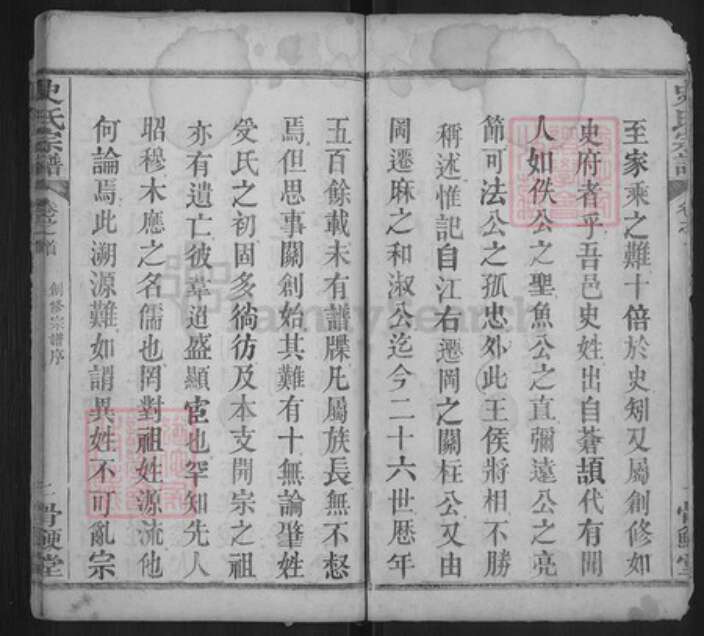 至家乘之難十倍於史矧又屬創修如
史府者乎吾邑史姓出自蒼頡代有聞
人如佚公之聖魚公之直彌遠公之亮
節可法公之孤忠外此王侯將相不勝
稱述惟記自江右遷岡之關柱公又由
岡遷麻之和淑公迄今二十六世歷年
五百餘載未有譜牒凡屬族長無不惄
焉但思事關創始其難有十無論肇姓
受氏之初固多徜彷及本支開宗之祖
亦有遺亡彼韋逌盛顯宦也罕知先人
昭穆木應之名儒也罔對祖姓源流他
何論焉此溯源難如謂異姓不可亂宗
史氏宗譜
卷之首
創修宗譜序
二
骨鯁堂